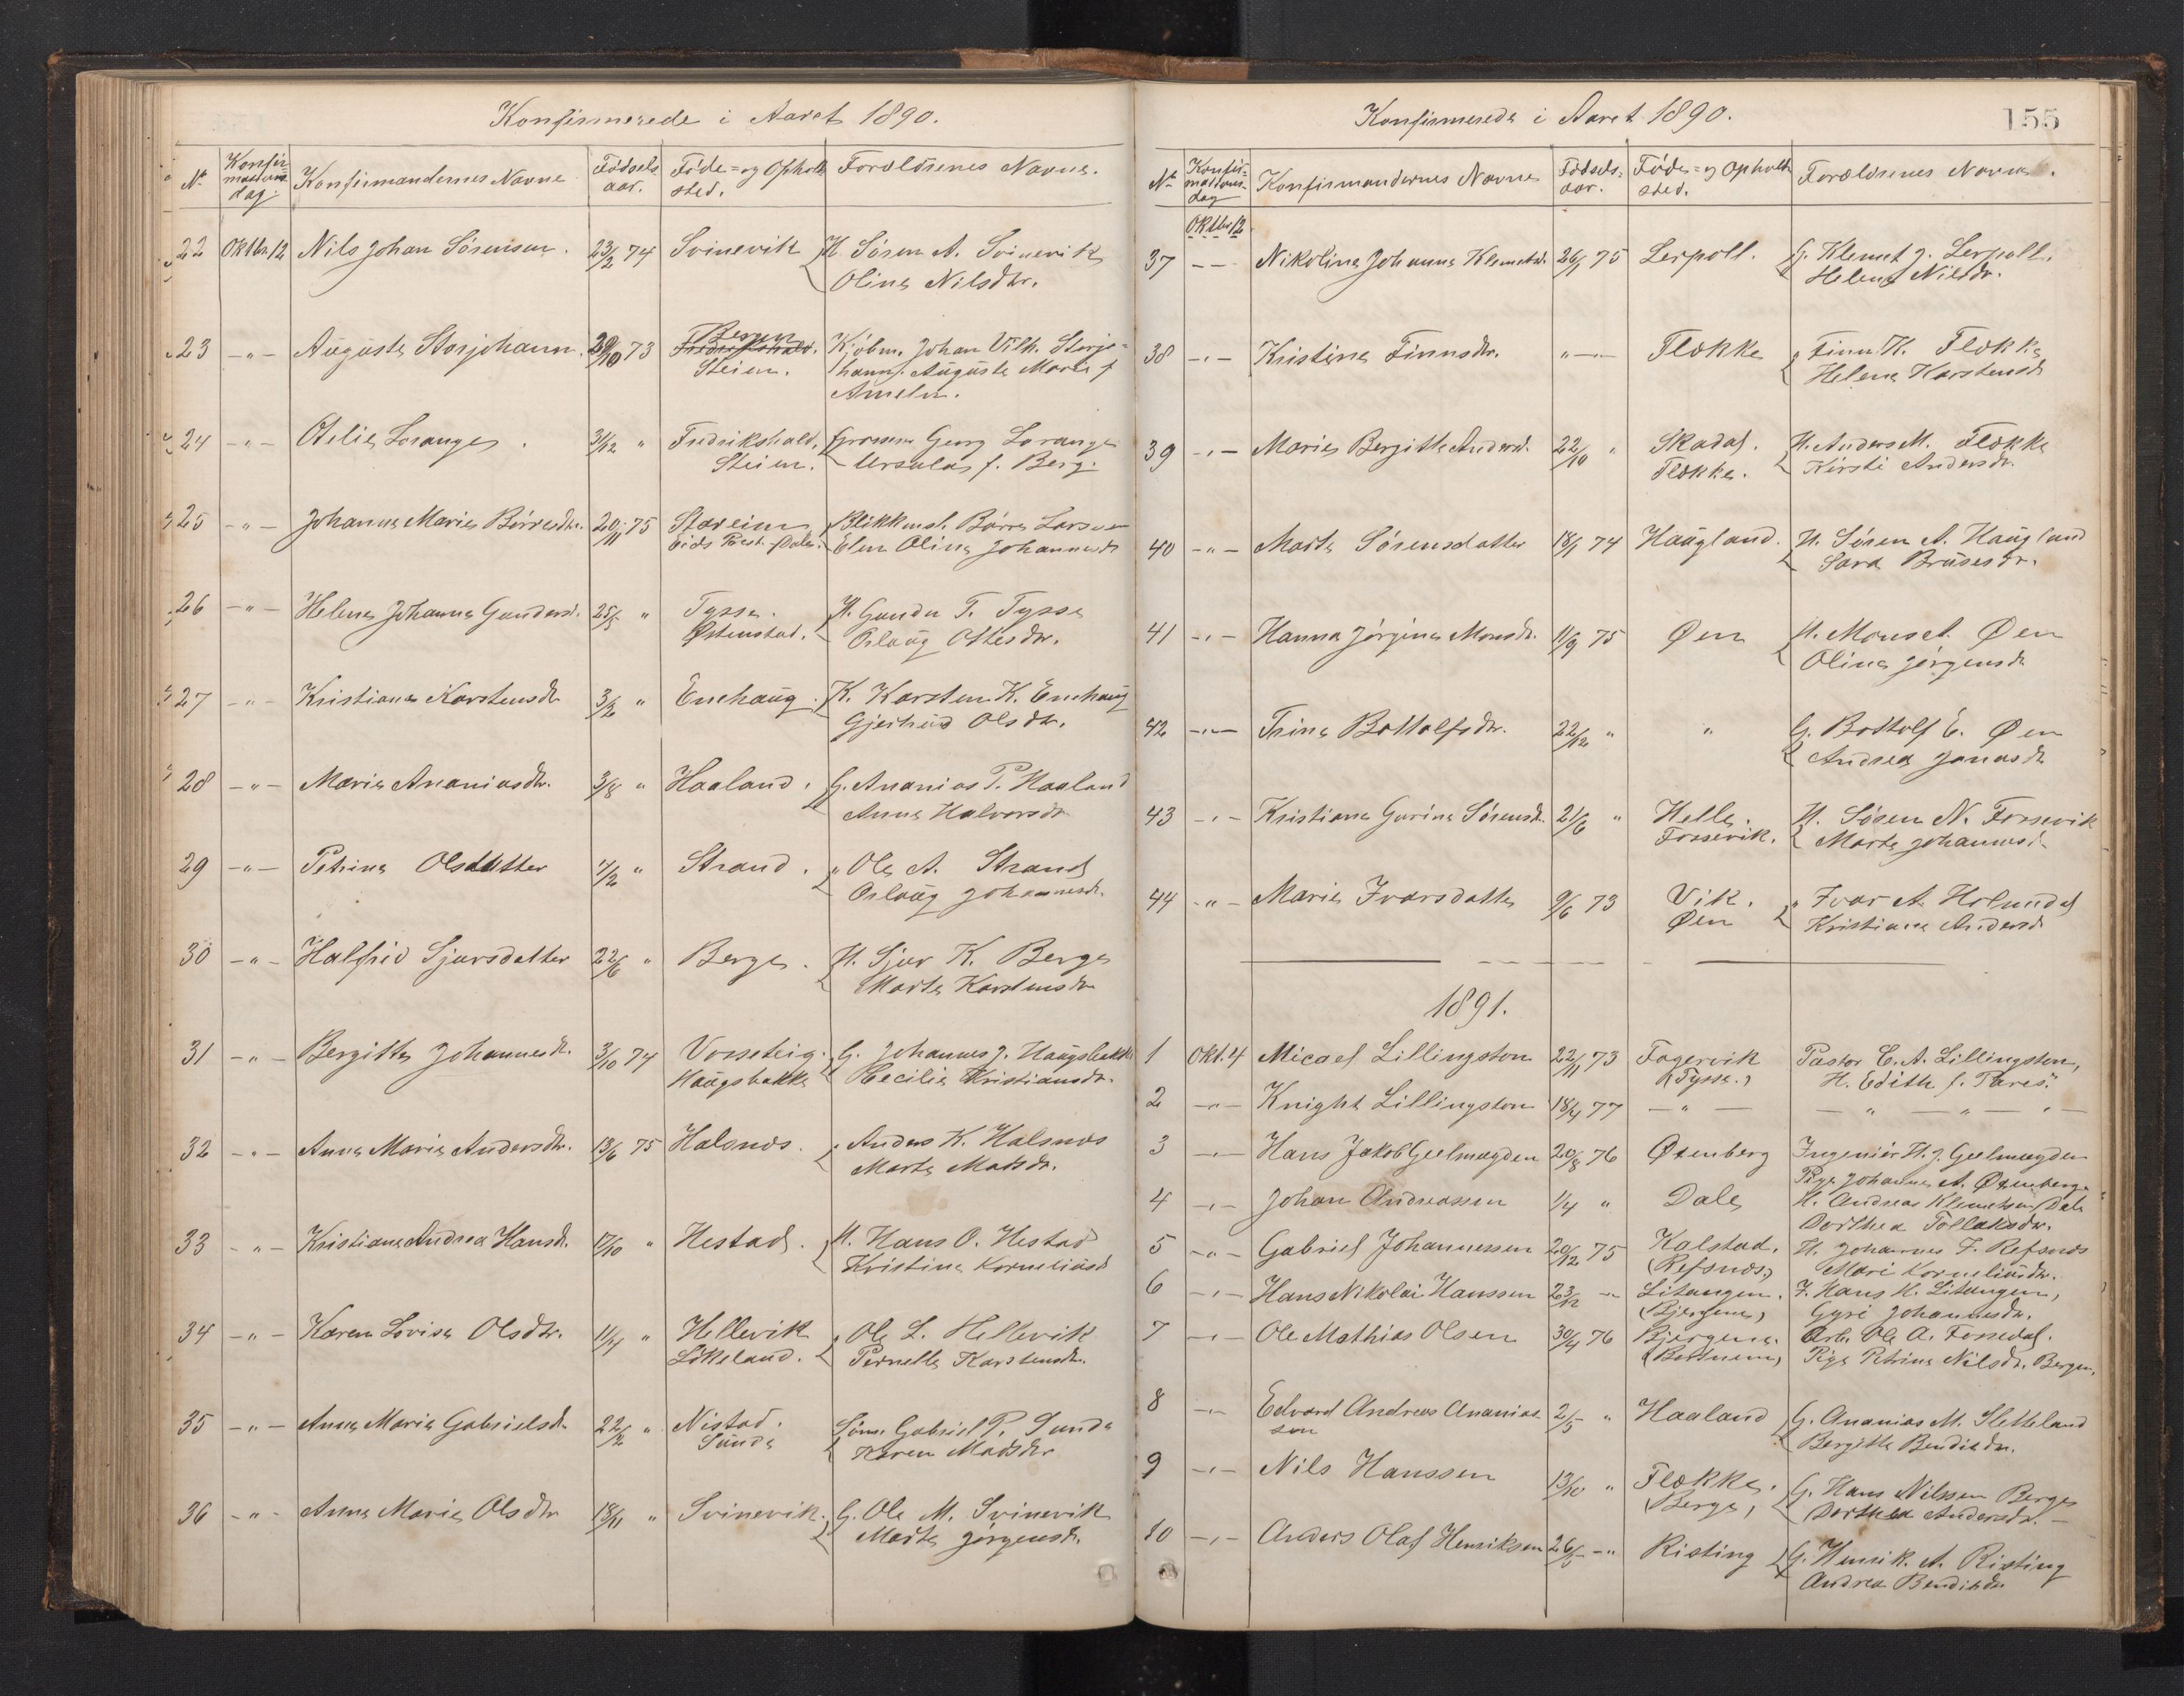 Konfirmerede i Aaret 1890.
No Konfirmationsdag. Konfirmandernes Navne Fødselsaar. Føde= og Opholdssted. Forældrenes Navne.
22 Oktbr. 12 Nils Johan Sørensen. 23/2 74 Svinevik H. Søren A. Svinevik
Olina Nilsdtr.
23 -"- Augusta Storjohann. 29/10 73 Bergen Kjøbm. Johan Vilh. Storjo=
Steien. hann. Augusta Marie f.
Ameln.
24 -"- Otelie Lorange. 31/12 " Fredrikshald. Grosserer Georg Lorange
Steien. Ursula f. Berg.
25 -"- Johanna Marie Børresdtr. 20/11 75 Støreim, Blikkensl. Børre Larsen
Eids Præst. Dale. Elen Olina Johannesdr
26 -"- Helena Johanna Gundersd. 25/5 " Tysse. H. Gunder T. Tysse
Østenstad. Oslaug Ottesdr.
27 -"- Kristiane Karstensdr 3/2 " Enehaug. K. Karsten K. Enehaug
Gjertrud Olsdtr.
28 -"- Marie Ananiasdtr. 3/8 " Haaland. G. Ananias P. Haaland
Anna Halvorsdr
29 -"- Petrina Olsdatter 7/2 " Strand. " Ole A. Strand
Oslaug Johannesdr.
30 -"- Halfrid Sjursdatter 22/6 " Berge. H. Sjur K. Berge
Marta Karstensdr
31 -"- Bergitte Johannesdr. 3/10 74 Vorseteig. G. Johannes J. Haugsbakke
Haugsbakke Cecilie Kristiansdr.
32 -"- Anna Marie Andersdtr. 13/6 75 Halsnæs. " Anders K. Halsnæs
Marta Matsdr.
33 -"- Kristiane Andrea Hansdr. 17/10 " Hestad. H. Hans O. Hestad
Kristina Korneliusd
34 -"- Karen Lovise Olsdtr. 11/4 " Hellevik " Ole L. Hellevik
Løkeland. Pernella Karstensdr.
35 -"- Anna Marie Gabrielsdr 22/2 " Nistad. Søm. Gabriel P. Sunde
Sunde Karen Madsdtr
36 -"- Anna Marie Olsdtr 18/11 " Svinevik. G. Ole M. Svinevik
Marta Jørgensdr.
Konfirmerede i Aaret 1890. 155
No Konfirmationsdag Konfirmandernes Navne Fødselsaar. Føde= og Opholdssted. Forældrenes Navne.
Oktbr 12
37 -- Nikolina Johanna Klemetsd. 26/1 75 Lerpoll. G. Klemet J. Lerpoll.
Helena Nilsdr.
38 -"- Kristina Finnsdtr. "-"- Flokke " Finn K. Flokke
Helena Karstensdr
39 -"- Marie Bergitte Andersd. 22/10 " Skadal. H. Anders M. Flokke
Flokke. Kirsti Andersdr.
40 -"- Marta Sørensdatter 18/1 74 Haugland. H. Søren A. Haugland
Sara Brusesdr.
41 -"- Hanna Jørgina Monsdr. 11/9 75 Øen H. Mons A. Øen
Olina Jørgensdr
42 -"- Trina Bottolfsdtr. 22/12 " " G. Bottolf E. Øen
Andrea Jonasdr
43 -"- Kristiane Gurine Sørensdr 21/6 " Helle. H. Søren N. Forsevik
Forsevik. Marta Johannesd.
44 -"- Marie Ivarsdatter 9/6 73 Vik. " Ivar A. Holmedal
Øen Kristiane Andersd.
1891.
1 Okt. 4 Micael Lillingston 22/11 73 Fagervik Pastor C. A. Lillingston,
(Tysse.) H. Edith f. Pares.
2 -"- Knight Lillingston 18/4 77 -"- -"-"-"-
3 -"- Hans Jakob Geelmuyden 20/8 76 Øxenberg Ingeniør H. J. Geelmuyden
Pige Johanna A. Øxenberg
4 -"- Johan Andreassen 1/4 " Dale H. Andreas Klemetsen Dale
Dorthea Tollaksdr.
5 -"- Gabriel Johannessen 20/12 75 Kalstad. H. Johannes F. Refsnæs
(Refsnæs) Mari Korneliusdtr.
6 -"- Hans Nikolai Hanssen 23/12 -"- Litangen. F. Hans H. Litangen,
(Bjergene) Gyri Johannesdr.
7 -"- Ole Mathias Olsen 30/4 76 Bjergene. Arb. Ole A. Fossedal.
(Bortnem) Pige Petrina Nilsdr. Bergen.
8 -"- Edvard Andreas Ananias 2/5 " Haaland G. Ananias M. Sletteland
sen Bergitta Bendiksdr.
9 -"- Nils Hanssen 13/10 " Flokke. G. Hans Nilssen Berge
(Berge) Dorthea Andersdr. -
10 -"- Anders Olaf Henriksen 26/5 -" Risting G. Henrik. A. Risting
Andrea Bendiksdr